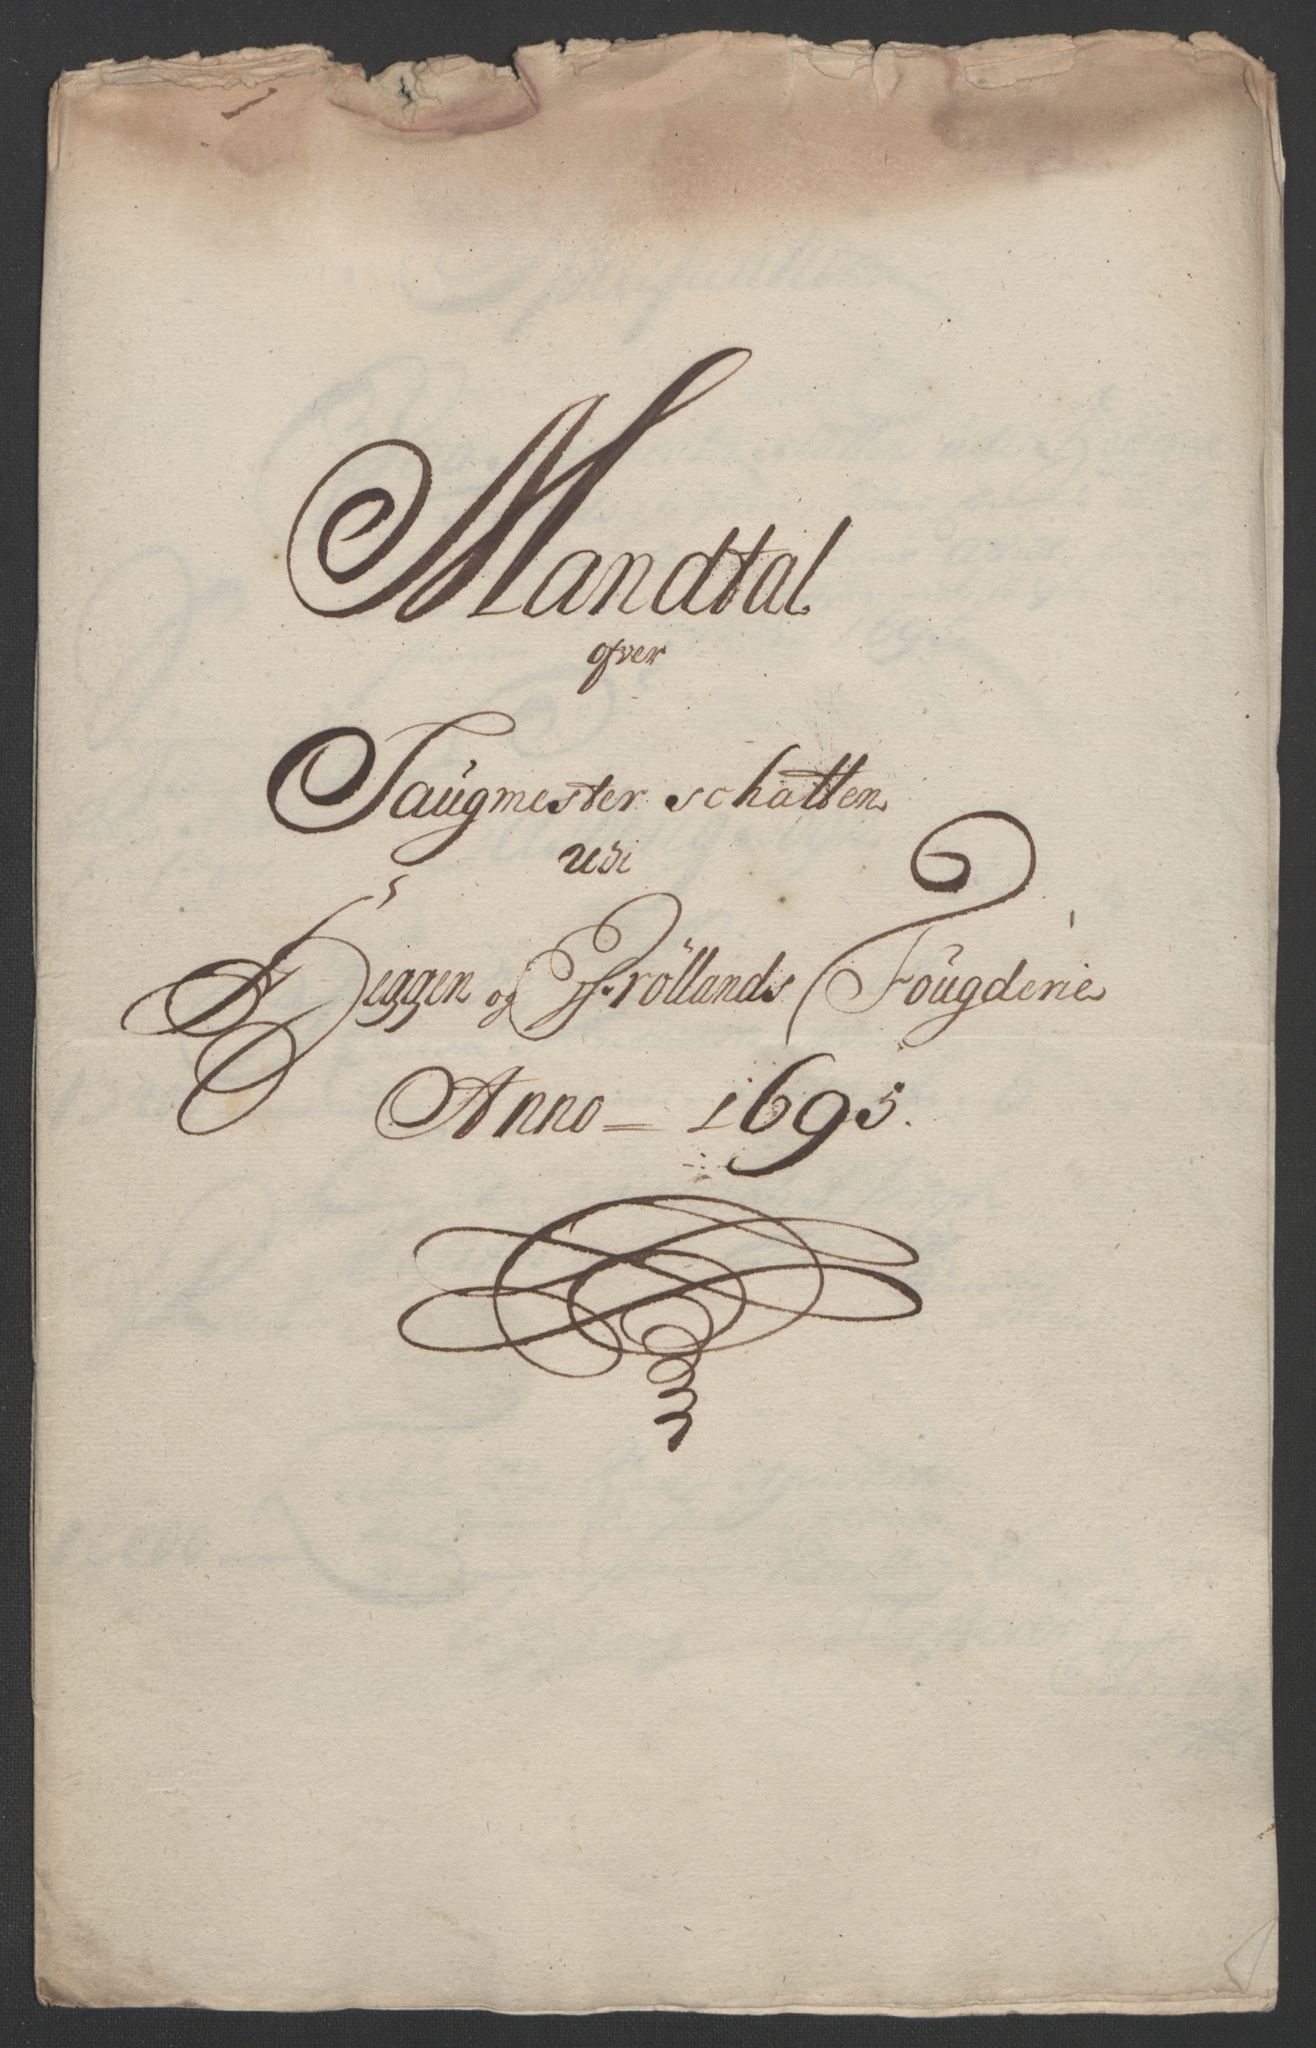 Mandtal
ofver
Saugmester schatten
udi
Heggen og Frøllands Fougderie
Anno = 1695.